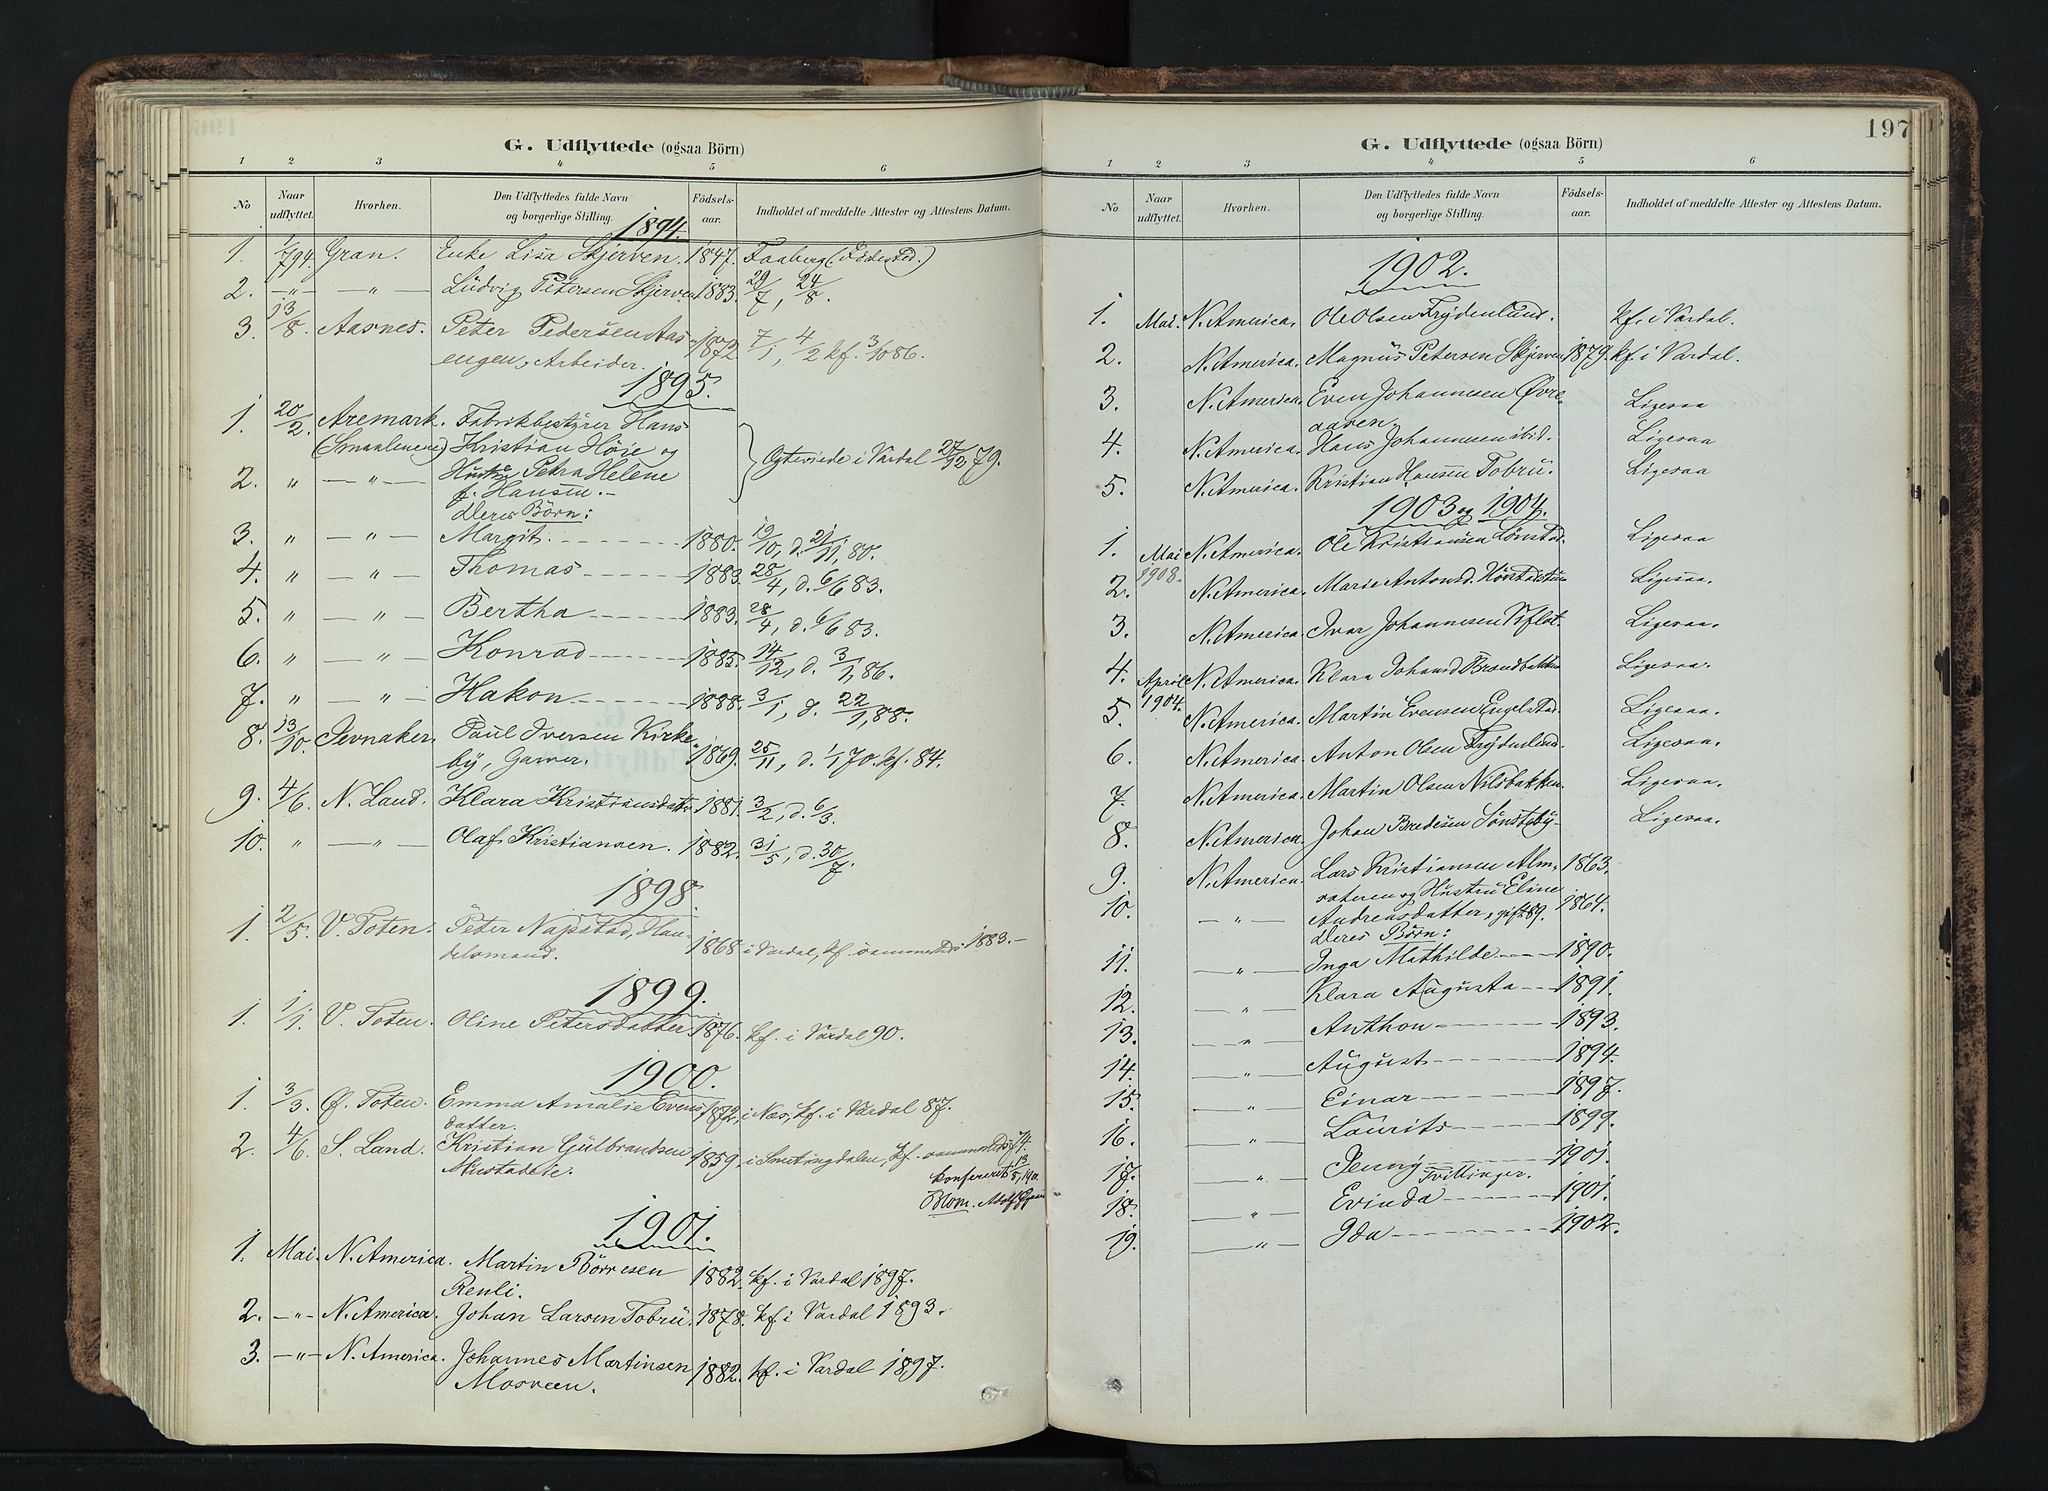 G. Udflyttede (ogsaa Börn)
1 2 3 4 5 6
No Naar udflyttet. Hvorhen. Den Udflyttedes fulde Navn og borgerlige Stilling. Födsels-aar. Indholdet af meddelte Attester og Attestens Datum.
1894.
1. 1/7 94. Gran. Enke Lisa Skjerven. 1847. Faaberg (Födested.)
2. —„— —„— Ludvig Petersen Skjerven 1883. 29/7, 24/8.
3. 13/8 Aasnes. Peter Pedersen Aas-
engen, Arbeider. 1872 7/1, 4/2 kf. 3/10 86.
1895.
1. 20/2. Aremark. Fabrikbestyrer Hans
(Smaalenene) Kristian Höie og
2. „ —„— Hustru Petra Helene
f. Hansen.— Ægteviede i Vardal 27/12 79.
Deres Börn:
3. „ —„— Margit. 1880. 19/10, d. 21/11, 80.
4. „ —„— Thomas 1883. 28/4, d. 6/6 83.
5. „ —„— Bertha 1883. 28/4, d. 6/6 83.
6. „ —„— Konrad 1885. 14/12, d. 3/1, 86.
7. „ —„— Hakon. 1888. 3/1, d. 22/1, 88.
8. 13/10. Jevnaker. Paul Iversen Kirke-
by, Garver. 1869. 25/11, d. 1/1 70. kf. 84.
9. 4/6. N. Land. Klara Kristiansdatter 1881. 3/2, d. 6/3.
10. „ —„— Olaf Kristiansen. 1882. 31/5, d. 30/7.
1898.
1. 2/5. V. Toten. Peter Napstad, Han-
delsmand. 1868 i Vardal, kf. sammesteds 1883.—
1899.
1. 1/1. V. Toten. Oline Petersdatter 1876. kf. i Vardal 90.
1900.
1. 3/3. Ø. Toten. Emma Amalie Evens-
datter. 1872, i Næs, kf. i Vardal 87.
2. 4/6. S. Land. Kristian Gulbrandsen
Mustadeie. 1859, i kf. sammesteds 74.
Konfereret 13/5, 190.
Blom.
1901.
1. Mai. N. America. Martin Börresen
Renli. 1882. kf. i Vardal 1897.
2. —„— N. America. Johan Larsen Tobru. 1878. kf. i Vardal 1893.
3. —„— N. America. Johannes Martinsen
Mosveen. 1882. kf. i Vardal 1897.
197
G. Udflyttede (ogsaa Börn)
1 2 3 4 5 6
No Naar udflyttet. Hvorhen. Den Udflyttedes fulde Navn og borgerlige Stilling. Födsels-aar. Indholdet af meddelte Attester og Attestens Datum.
1902.
1. Mai. N. America. Ole Olsen Frydenlund. kf. i Vardal.
2. N. America. Magnus Petersen Skjerven 1879. kf. i Vardal.
3. N. America. Even Johannesen Øvre-
aasen. Ligesaa
4. N. America. Hans Johannesen ibid. Ligesaa
5. N. America. Kristian Hansen Tobru. Ligesaa
1903 og 1904.
1. Mai N. America. Ole Kristiansen Lönstad. Ligesaa
2. 1903. N. America. Marie Antonsd. Ligesaa.
3. N. America. Ivar Johannesen Ligesaa.
4. April N. America. Klara Johansd. Brandbakken Ligesaa.
5. 1904. N. America. Martin Evensen Engelstad. Ligesaa.
6. N. America. Anton Olsen Frydenlund. Ligesaa.
7. N. America. Martin Olsen Nilsbakken. Ligesaa.
8. N. America. Johan Bredesen Sönsteby- Ligesaa.
9. N. America. Lars Kristiansen Alm- 1863.
10. —„— sateren og Hustru Eline
Andreasdatter, gift 89. 1864.
Deres Börn:
11. —„— Inga Mathilde 1890.
12. „ Klara Augusta 1891.
13. —„— Anthon 1893.
14. —„— August 1894.
15. —„— Einar 1897.
16. —„— Laurits 1899.
17. —„— Jenny 1901.
Tvillinger.
18. —„— Evinda 1901.
19. —„— Ida 1902.